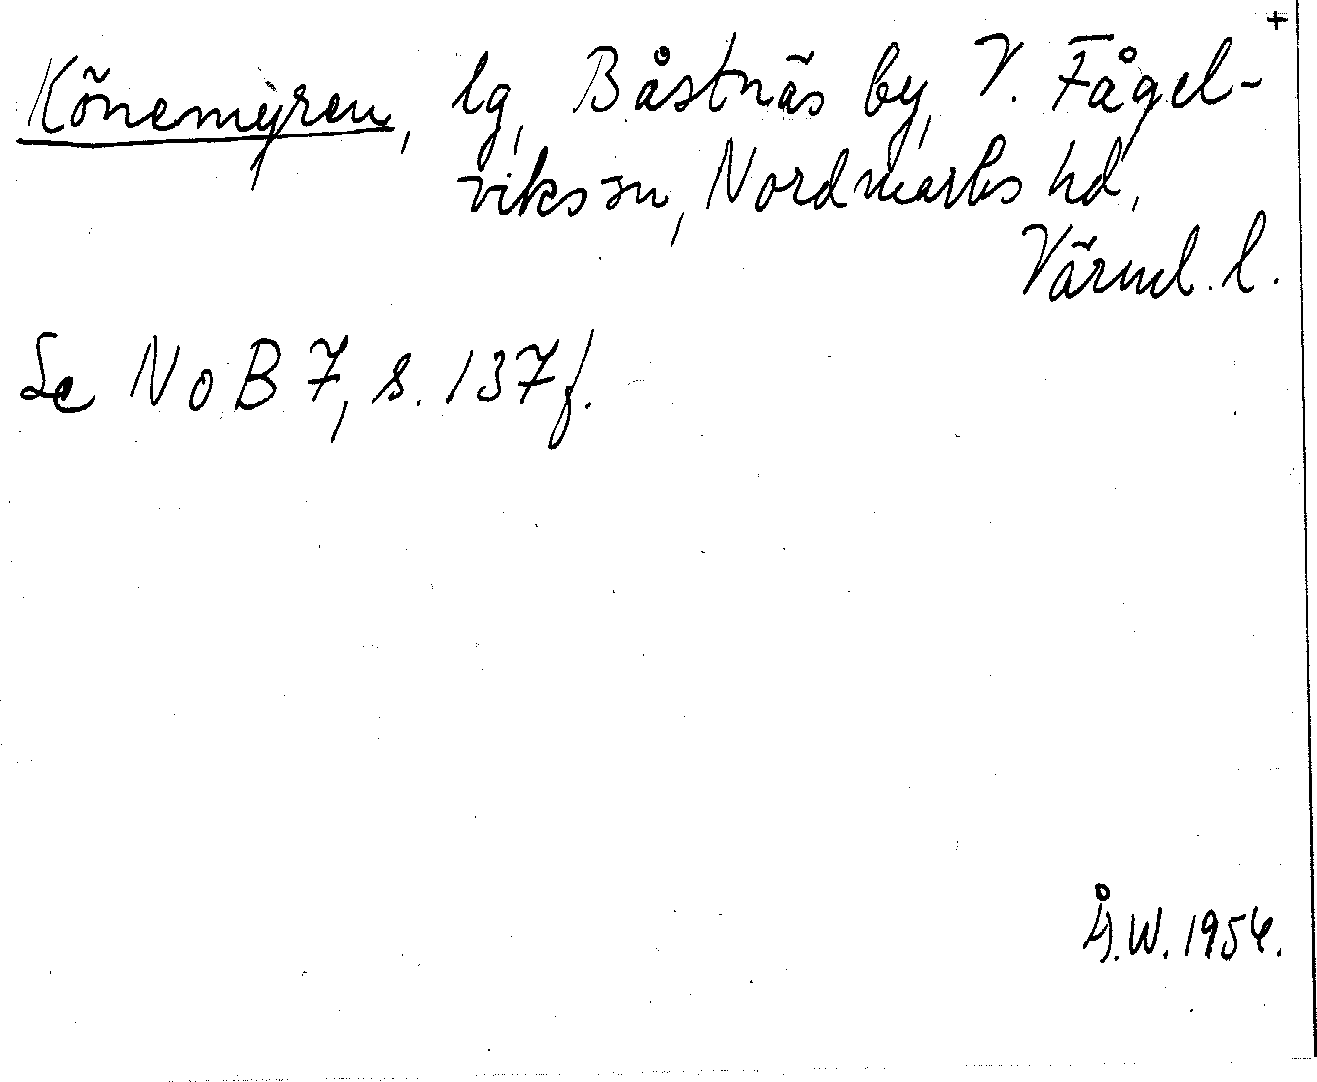 +
Könemyren, lg, Båstnäs by, V. Fågel-
viks sn, Nordmarks hd,
Värml. l.
Se NoB 7, s. 137 f.
Å.W. 1954.